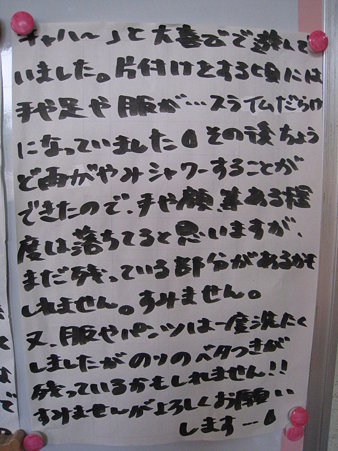 キャハ〜」と大喜びで遊んで
いました。片付けをする頃には
手や足や服が…スライムだらけ
になっていました。その後ちょう
ど雨がやみシャワーすることが
できたので、手や顔、某ある程
度は落ちてると思いますが、
まだ残っている部分があるかも
しれません。すみません。
又、服やパンツは一度洗たく
しましたがのりのベタつきが
残っているかもしれません!!
すみませんが上ろしくお願い
します…。